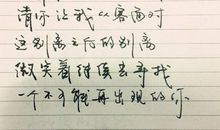 请你让我从容面对
这别离之后的别离
微笑着继续去寻找
一个不可能再出现的你